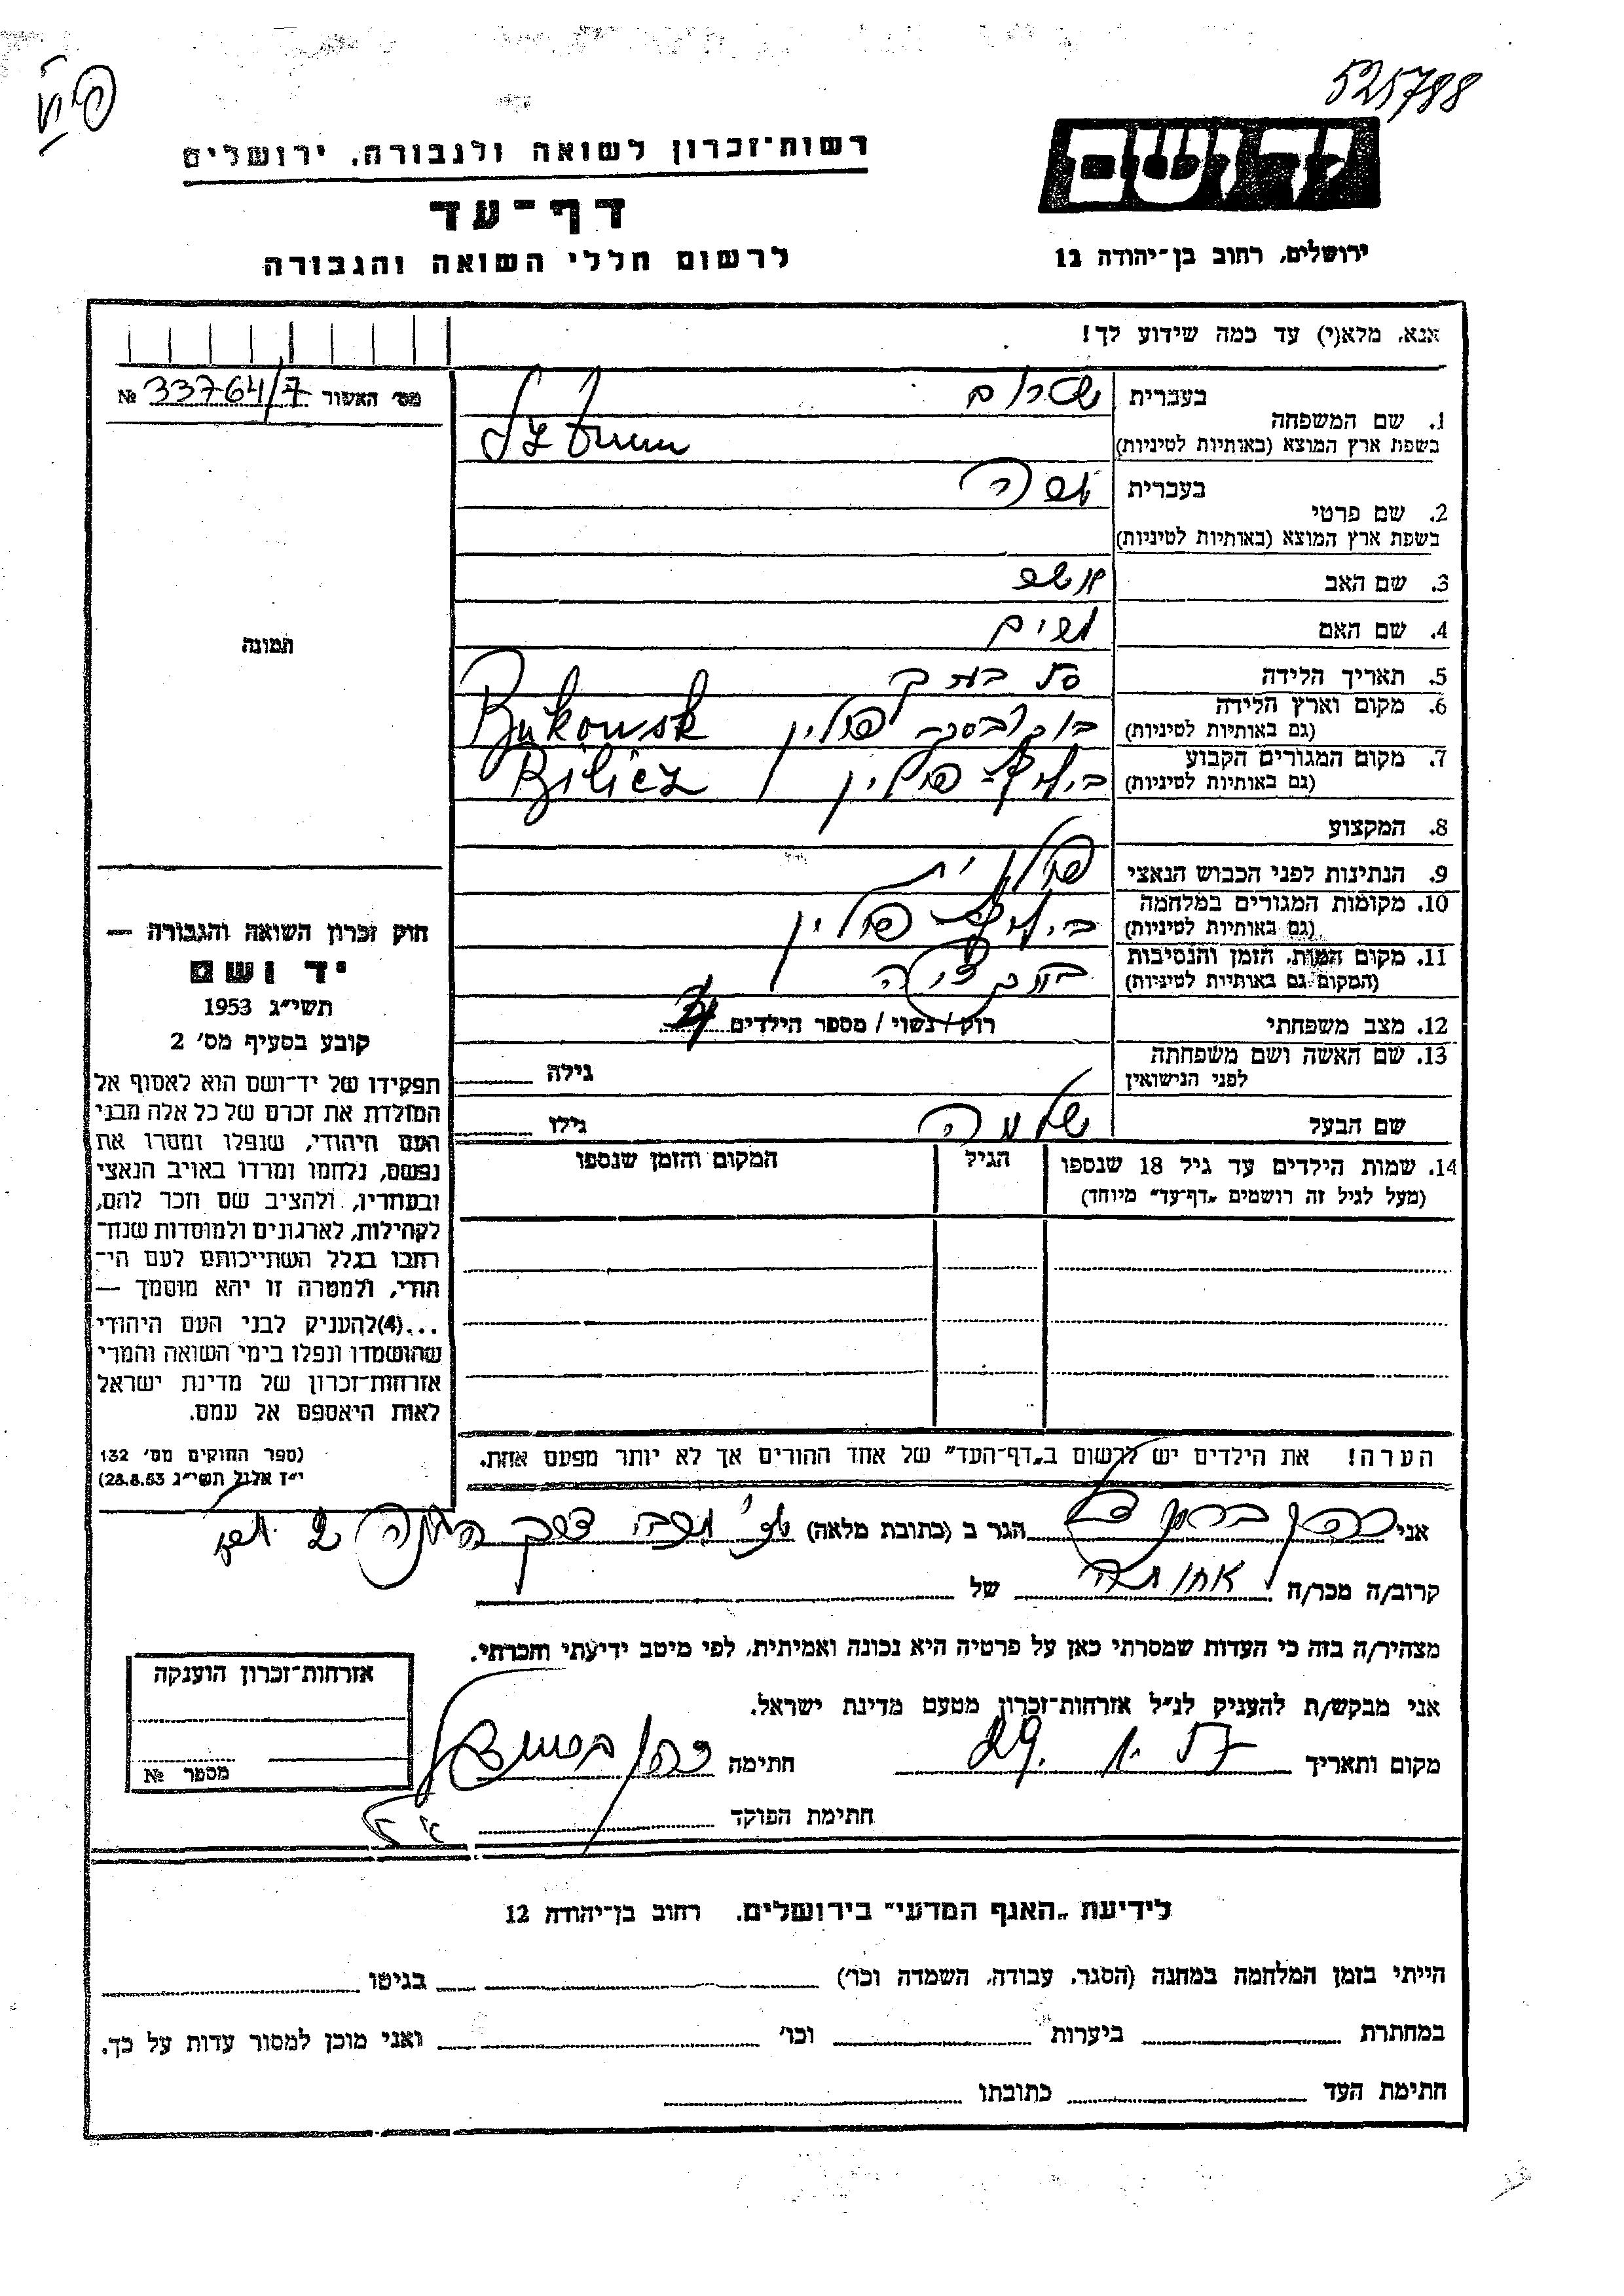 525788
רשות־זכרון לשואה ולגבורה, ירושלים
יד ושם
דף־עד
לרשום חללי השואה והגבורה
ירושלים, רחוב בן־יהודה 12
אנא, מלא(י) עד כמה שידוע לך!
מס׳ האשור 33764/7 №
1. שם המשפחה
בעברית שטרום
בשפת ארץ המוצא (באותיות לטיניות) Sztrum
2. שם פרטי
בעברית
בשפת ארץ המוצא (באותיות לטיניות)
3. שם האב
4. שם האם
5. תאריך הלידה
6. מקום וארץ הלידה
(גם באותיות לטיניות) פולין Bukowsk
7. מקום המגורים הקבוע
(גם באותיות לטיניות) פולין Bilicz
8. המקצוע
9. הנתינות לפני הכבוש הנאצי פולנית
10. מקומות המגורים במלחמה
(גם באותיות לטיניות) פולין
11. מקום המות, הזמן והנסיבות
(המקום גם באותיות לטיניות)
12. מצב משפחתי רוק / נשוי / מספר הילדים
13. שם האשה ושם משפחתה
לפני הנישואין
גילה
שם הבעל שלמה גילו
14. שמות הילדים עד גיל 18 שנספו הגיל המקום והזמן שנספו
(מעל לגיל זה רושמים „דף־עד״ מיוחד)
הערה! את הילדים יש לרשום ב„דף־העד״ של אחד ההורים אך לא יותר מפעם אחת.
תמונה
חוק זכרון השואה והגבורה —
יד ושם
תשי״ג 1953
קובע בסעיף מס׳ 2
תפקידו של יד־ושם הוא לאסוף אל
המולדת את זכרם של כל אלה מבני
העם היהודי, שנפלו ומסרו את
נפשם, נלחמו ומרדו באויב הנאצי
ובעוזריו, ולהציב שם וזכר להם,
לקהילות, לארגונים ולמוסדות שנח־
רבו בגלל השתייכותם לעם הי־
הודי, ולמטרה זו יהא מוסמך —
...(4)להעניק לבני העם היהודי
שהושמדו ונפלו בימי השואה והמרי
אזרחות־זכרון של מדינת ישראל
לאות היאספם אל עמם.
(ספר החוקים מס׳ 132
י״ז אלול תשי״ג 28.8.53)
אני כהן הגר ב (כתובת מלאה)
קרוב/ה מכר/ה אחותה של
מצהיר/ה בזה כי העדות שמסרתי כאן על פרטיה היא נכונה ואמיתית, לפי מיטב ידיעתי והכרתי.
אני מבקש/ת להעניק לנ״ל אזרחות־זכרון מטעם מדינת ישראל.
מקום ותאריך 29. 1. 57 חתימה כהן
חתימת הפוקד
אזרחות־זכרון הוענקה
מספר №
לידיעת „האגף המדעי״ בירושלים, רחוב בן־יהודה 12
הייתי בזמן המלחמה במחנה (הסגר, עבודה, השמדה וכו׳) בגיטו
במחתרת ביערות וכו׳ ואני מוכן למסור עדות על כך.
חתימת העד כתובתו